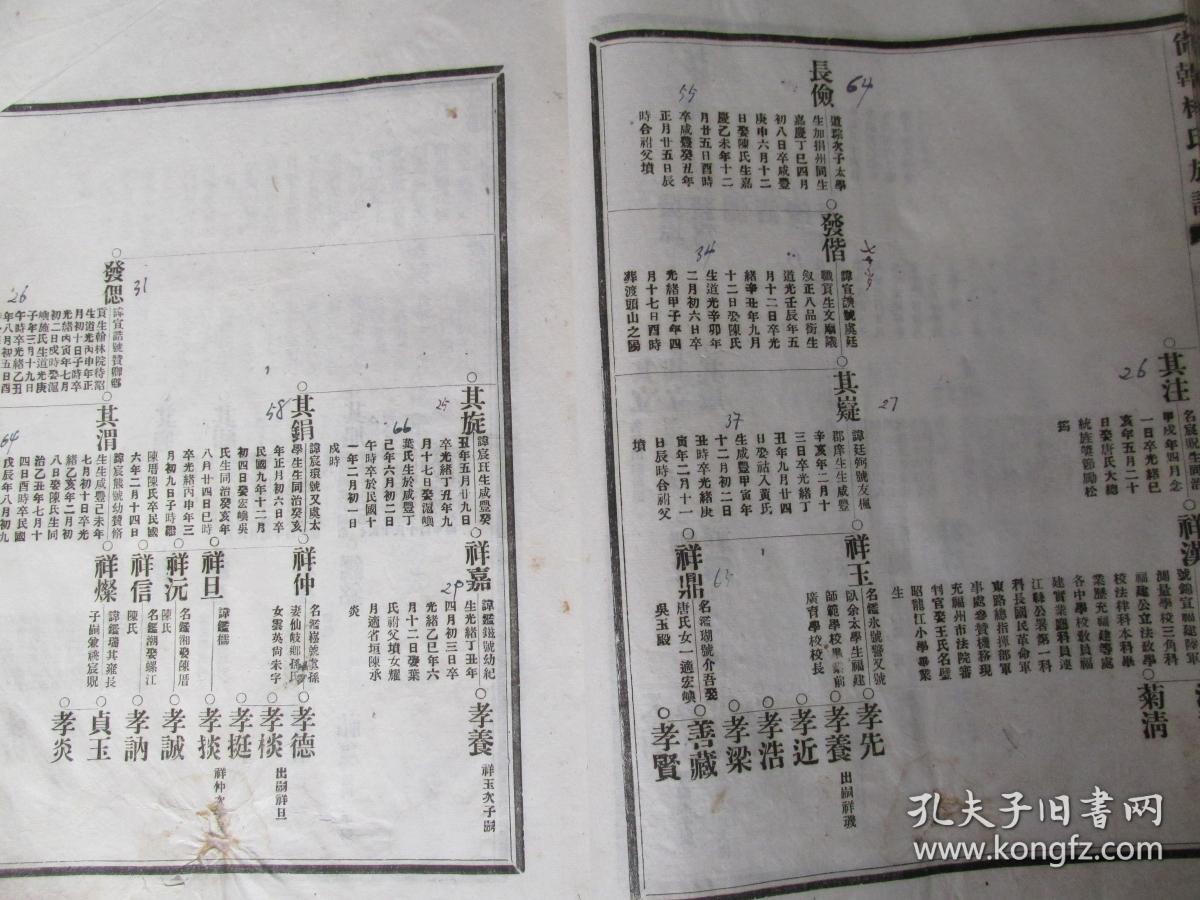 長儉
64
道琮次子太學
生加捐州同生
嘉慶丁巳四月
初八日卒咸豐
庚申六月十二
日娶陳氏生嘉
慶乙未年十二
月廿五日酉時
卒咸豐癸丑年
正月廿五日辰
時合祔父墳
55
發偕
諱宣讚號處廷
職貢生文廟議
敘正八品銜生
道光壬辰年五
月十二日卒光
緒辛丑年九月
十二日娶陳氏
生道光辛卯年
二月初六日卒
光緒甲子年四
月十七日酉時
葬渡頭山之陽
34
其嶷
27
諱廷舸號友楓
郡庠生生咸豐
辛亥年二月十
三日卒光緒丁
丑年九月廿四
日娶祜入黃氏
生咸豐甲寅年
十二月初二日
丑時卒光緒庚
寅年二月十一
日辰時合祔父
墳
37
其注
26
名宸賜生同治
甲戌年四月念
一日卒光緒己
亥年五月二十
日娶唐氏大總
統族獎節勵松
筠
祥漢
號錦宣福建陸軍
測量學校三角科
福建公立法政學
校法律科本科畢
業歷充福建等處
各中學校敎員福
建實業廳科員連
江縣公署第一科
科長國民革命軍
東路總指揮部軍
事處參贊機務現
充福州市法院審
判官娶王氏名璧
昭龍江小學畢業
生
菊清
祥玉
名鑑永號警又號
臥余太學生福建
師範學校畢業前
廣育學校校長
祥鼎
63
名鑑瑚號介吾娶
唐氏女一適宏嶼
吳玉殿
孝先
孝養
出嗣祥璣
孝近
孝浩
孝梁
善藏
孝賢
發偲
31
諱宣誥號贊卿鄉
貢生翰林院待詔
生道光丙申年正
月初十日子時卒
光緒丙寅年七月
初二日戌時娶滬
嶼施氏生道光庚
子年三月十九日
午時卒光緒乙丑
年八月初五日四
26
其旋
25
諱宸珏生咸豐癸
丑年五月廿九日
卒光緒丁丑年九
月十七日娶滬嶼
葉氏生於咸豐丁
己年六月初二日
午時卒於民國十
一年二月初一日
戌時
66
其鋗
58
諱宸環號又處太
學生生同治癸亥
年正月初六日卒
民國九年十二月
初四日娶宏嶼吳
氏生同治癸亥年
八月廿四日巳時
卒光緒丙申年三
月初九日子時繼
陳厝陳氏卒民國
六年二月十四日
其渭
諱宸熊號幼贊脩
生生咸豐己未年
七月初十日卒光
緒乙亥年二月初
八日娶陳氏生同
治乙丑年七月十
四日酉時卒民國
戊辰年八月初九
64
祥嘉
29
諱鑑鎡號幼紀
生光緒丁丑年
四月初三日卒
光緒乙巳年六
月十二日娶葉
氏祔父墳女耀
月適省垣陳承
炎
祥仲
名鑑榛號寰孫
妻仙岐鄉孫氏
女雲英尙未字
祥旦
諱鑑儒
祥沅
名鑑湘娶陳厝
陳氏
祥信
名鑑潮娶螺江
陳氏
祥燦
諱鑑瑞其雍長
子嗣兼祧宸貺
孝養
祥玉次子嗣
孝德
孝棪
出嗣祥旦
孝挺
孝掞
祥仲次
孝誠
孝訥
貞玉
孝炎
孔夫子旧书网
www.kongfz.com